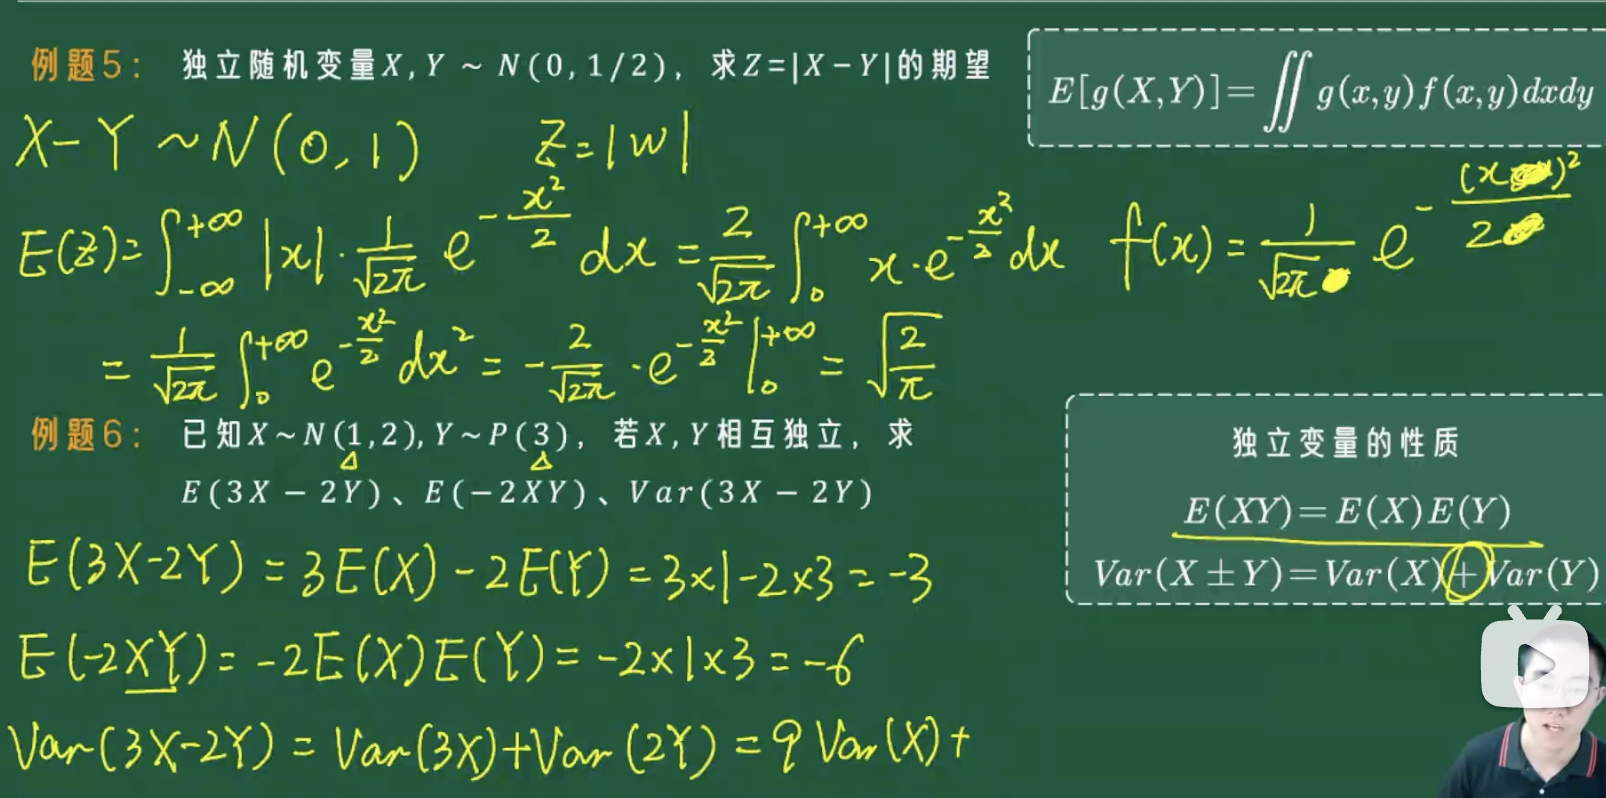 例题5： 独立随机变量X, Y ~ N(0, 1/2)，求Z=|X − Y|的期望
E[g(X,Y)]=∬g(x,y)f(x,y)dxdy
X-Y ~ N(0,1) Z=|W|
E(Z)=∫_{-∞}^{+∞} |x|·\frac{1}{\sqrt{2π}} e^{-\frac{x^2}{2}} dx = \frac{2}{\sqrt{2π}} ∫_0^{+∞} x·e^{-\frac{x^2}{2}} dx
f(x) = \frac{1}{\sqrt{2π}} e^{-\frac{(x)^2}{2}}
= \frac{1}{\sqrt{2π}} ∫_0^{+∞} e^{-\frac{x^2}{2}} dx^2 = -\frac{2}{\sqrt{2π}}·e^{-\frac{x^2}{2}}|_0^{+∞} = \sqrt{\frac{2}{π}}
例题6： 已知X~N(1,2), Y~P(3)，若X, Y相互独立，求
E(3X − 2Y)、E(−2XY)、Var(3X − 2Y)
独立变量的性质
E(XY)=E(X)E(Y)
Var(X±Y)=Var(X)+Var(Y)
E(3X-2Y) = 3E(X) - 2E(Y) = 3×1-2×3 = -3
E(-2XY) = -2E(X)E(Y) = -2×1×3 = -6
Var(3X-2Y) = Var(3X)+Var(2Y) = 9Var(X)+